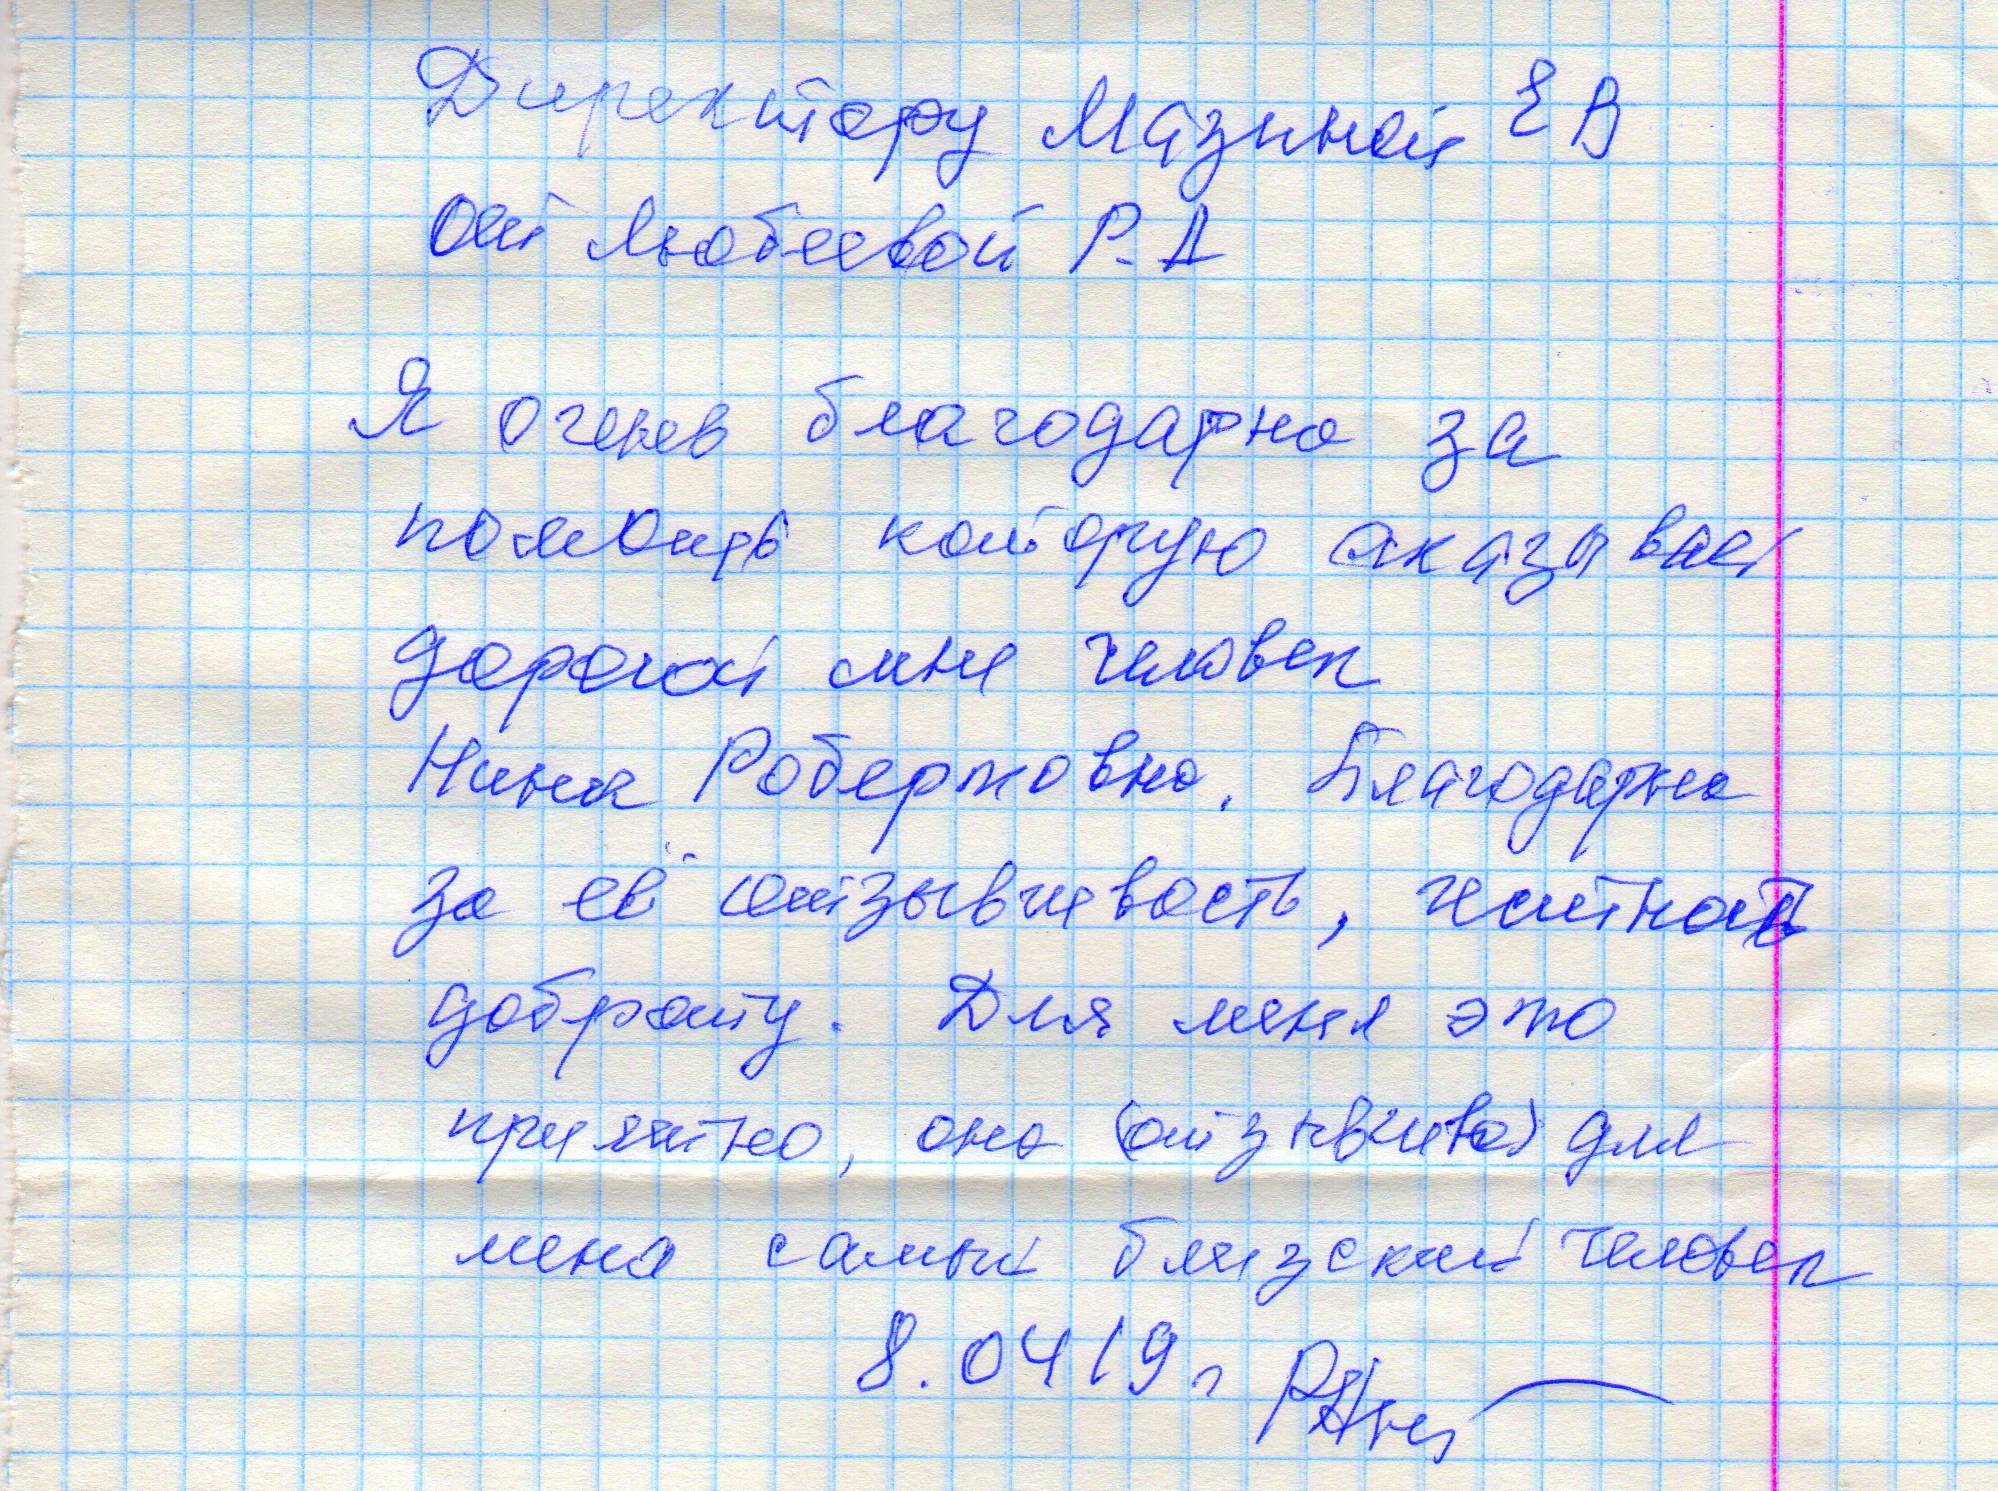 Директору Мазиной Е В
от Любеевой Р.А
Я очень благодарна за
помощь которую оказывает
дорогой мне человек
Нина Робертовна. Благодарна
за её отзывчивость, честность
доброту. Для меня это
приятно, она (отзывчива) для
меня самый близский человек
8.04 19 г